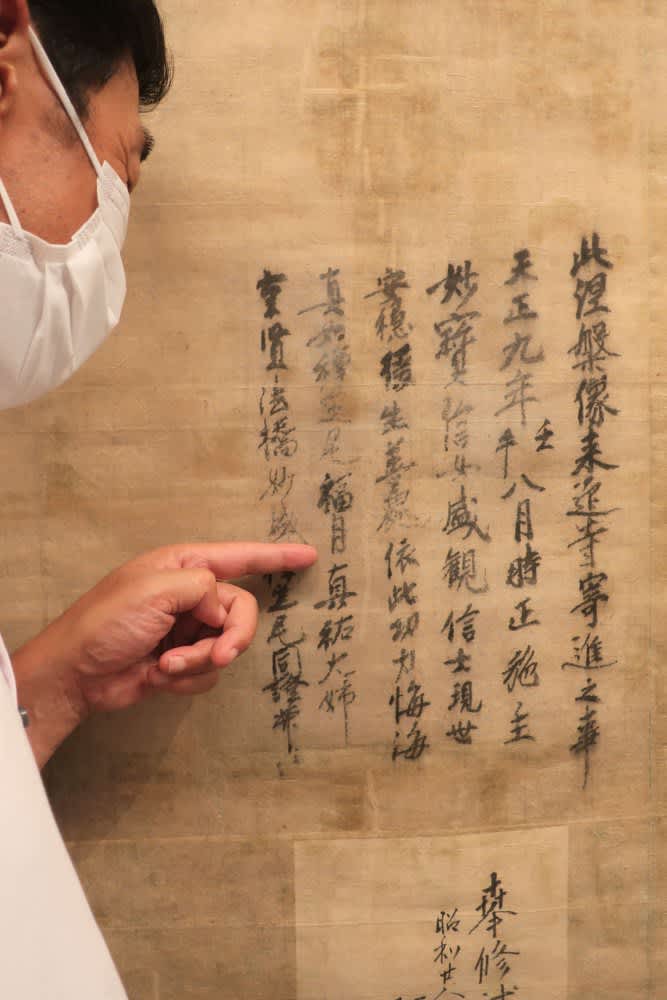 此涅槃像来迎寺寄進之事
天正九年壬午八月時正施主
妙寳信女盛観信士現世
安穏後生善處依此功力悔海
真如禅定尼福月真祐大姉
賢法橋妙定尼同證
奉修
昭和廿八